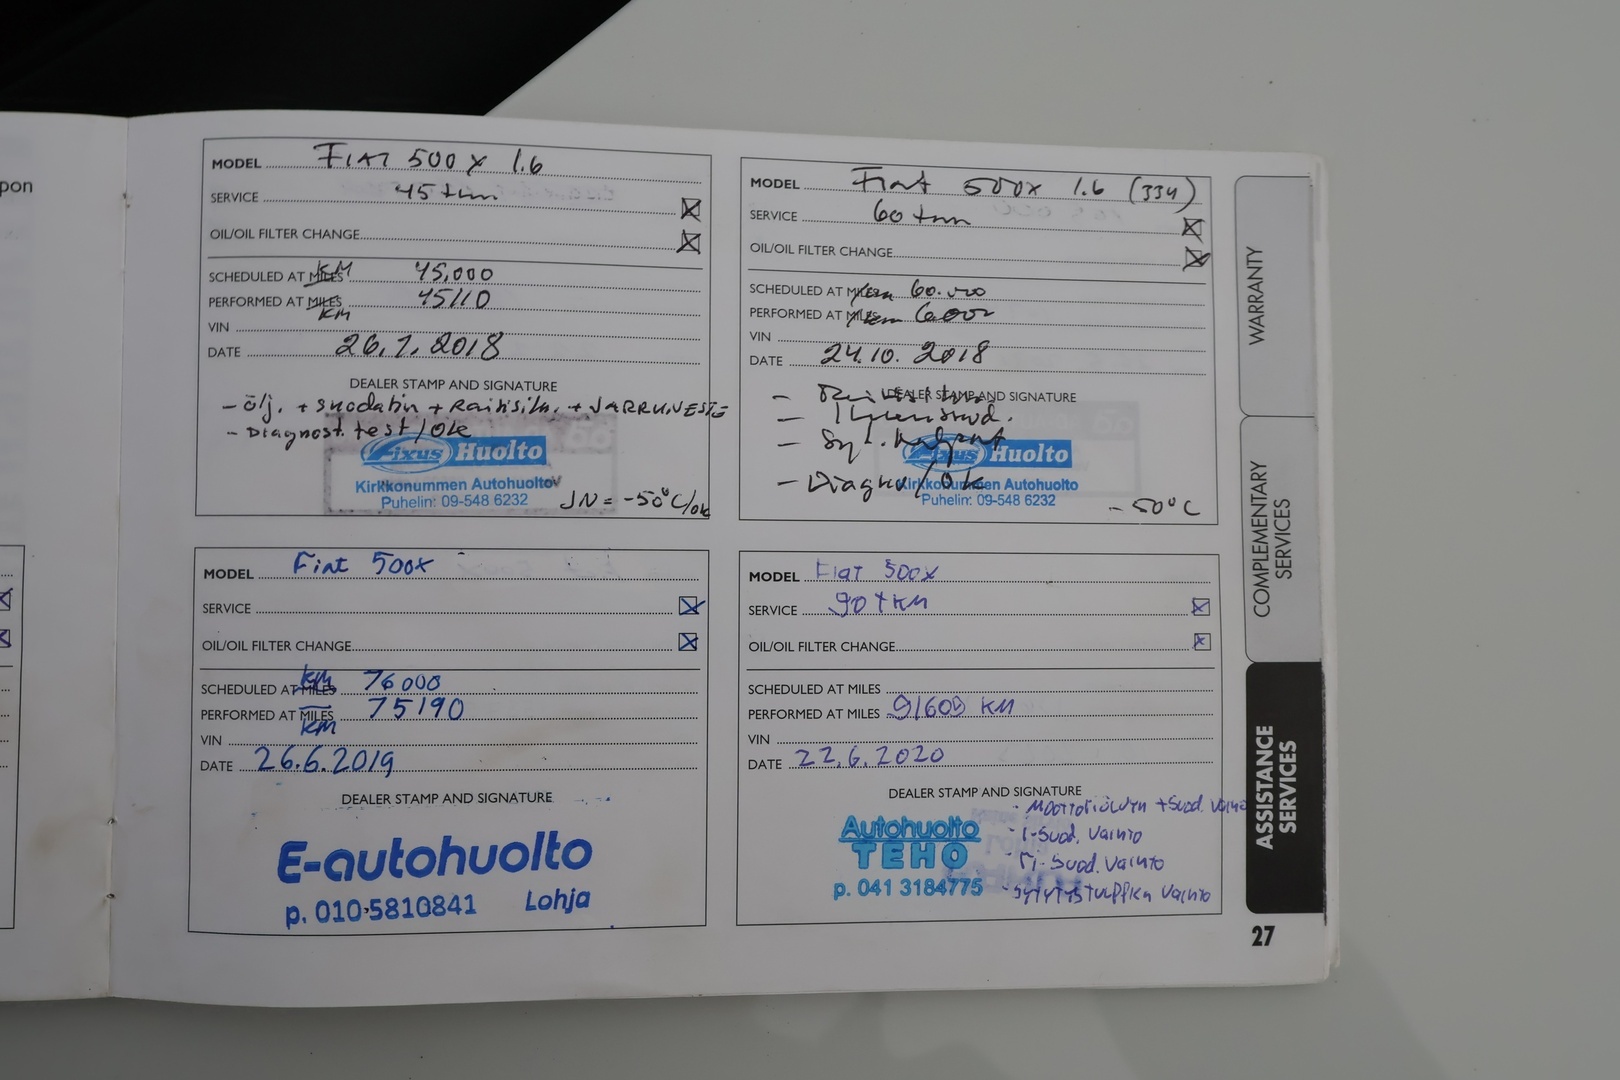 pon
MODEL FIAT 500 X 1.6
SERVICE 45 tkm
OIL/OIL FILTER CHANGE
SCHEDULED AT MILES KM 45,000
PERFORMED AT MILES KM 45110
VIN
DATE 26.1.2018
DEALER STAMP AND SIGNATURE
- ölj. + suodatin + Raitisilm. + JARRUNESTE
- Diagnost. test/OK
Fixus Huolto
Kirkkonummen Autohuolto
Puhelin: 09-548 6232
JN = -50°C/ok
MODEL Fiat 500x 1.6 (334)
SERVICE 60 tkm
OIL/OIL FILTER CHANGE
SCHEDULED AT MILES /km 60.000
PERFORMED AT MILES /km
VIN
DATE 24.10. 2018
DEALER STAMP AND SIGNATURE
- Diagnos/OK
Fixus Huolto
Kirkkonummen Autohuolto
Puhelin: 09-548 6232
-50°C
MODEL Fiat 500X
SERVICE
OIL/OIL FILTER CHANGE
SCHEDULED AT MILES km 76000
PERFORMED AT MILES km 75190
VIN
DATE 26.6.2019
DEALER STAMP AND SIGNATURE
E-autohuolto
p. 010-5810841 Lohja
MODEL Fiat 500X
SERVICE 90 tKM
OIL/OIL FILTER CHANGE
SCHEDULED AT MILES
PERFORMED AT MILES 91609 KM
VIN
DATE 22.6.2020
DEALER STAMP AND SIGNATURE
Autohuolto
TEHO
p. 041 3184775
- Moottoriöljyn + Suod. vaihto
- I-Suod. Vaihto
- Ri-Suod. Vaihto
- Sytytystulppien Vaihto
WARRANTY
COMPLEMENTARY
SERVICES
ASSISTANCE
SERVICES
27